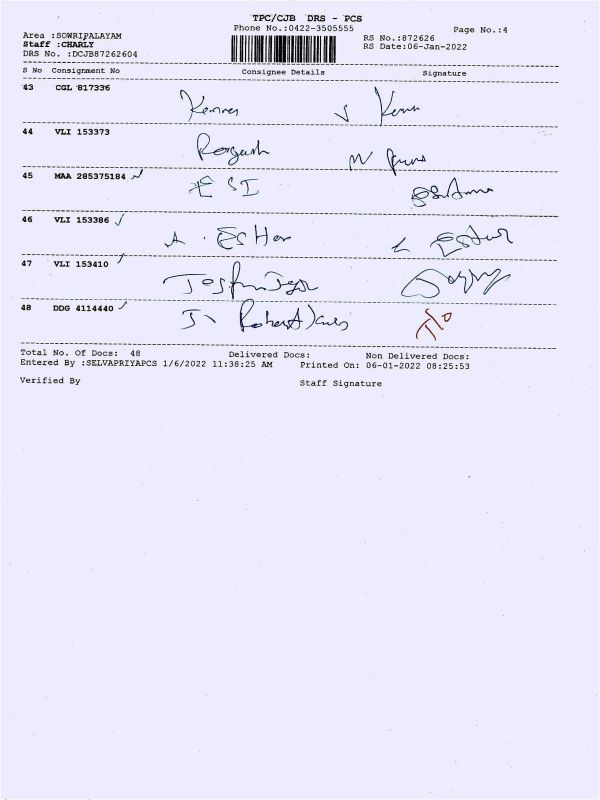 TPC/CJB DRS - PCS
Phone No.:0422-3505555
Page No.:4
Area :SOWRIPALAYAM
RS No.:872626
Staff :CHARLY
RS Date:06-Jan-2022
DRS No. :DCJB87262604
S No Consignment No Consignee Details Signature
43 CGL 817336
44 VLI 153373
45 MAA 285375184 ESI
46 VLI 153386 A. EsTHer
47 VLI 153410
48 DDG 4114440 Robert
Total No. Of Docs: 48 Delivered Docs: Non Delivered Docs:
Entered By :SELVAPRIYAPCS 1/6/2022 11:38:25 AM Printed On: 06-01-2022 08:25:53
Verified By Staff Signature